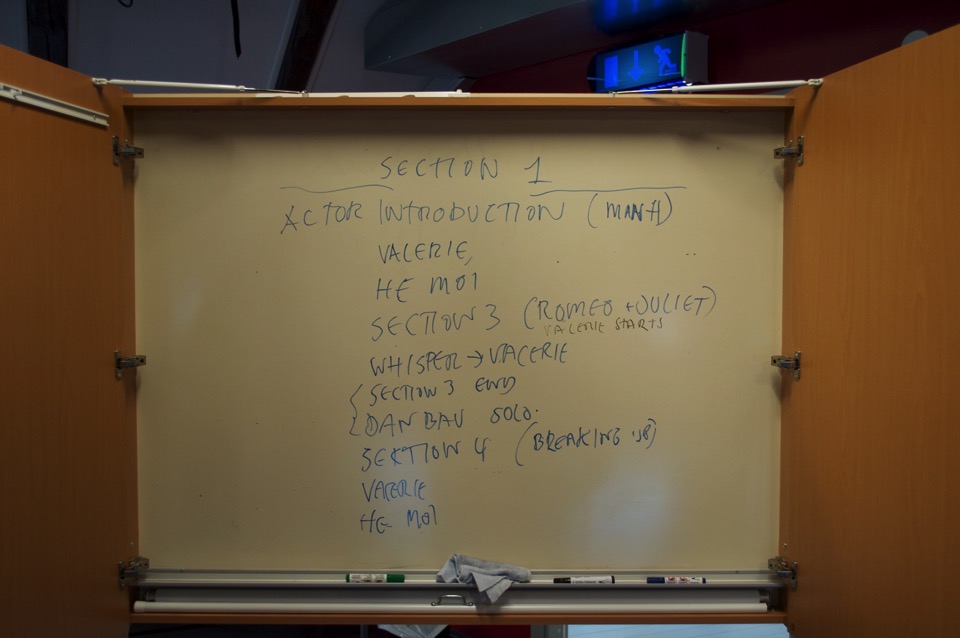 SECTION 1
ACTOR INTRODUCTION (MANH)
VALERIE,
HE MOI
SECTION 3 (ROMEO + JULIET)
VALERIE STARTS
WHISPER → VALERIE
SECTION 3 END
DAN BAU SOLO.
SECTION 4 (BREAKING
VALERIE
HE MOI